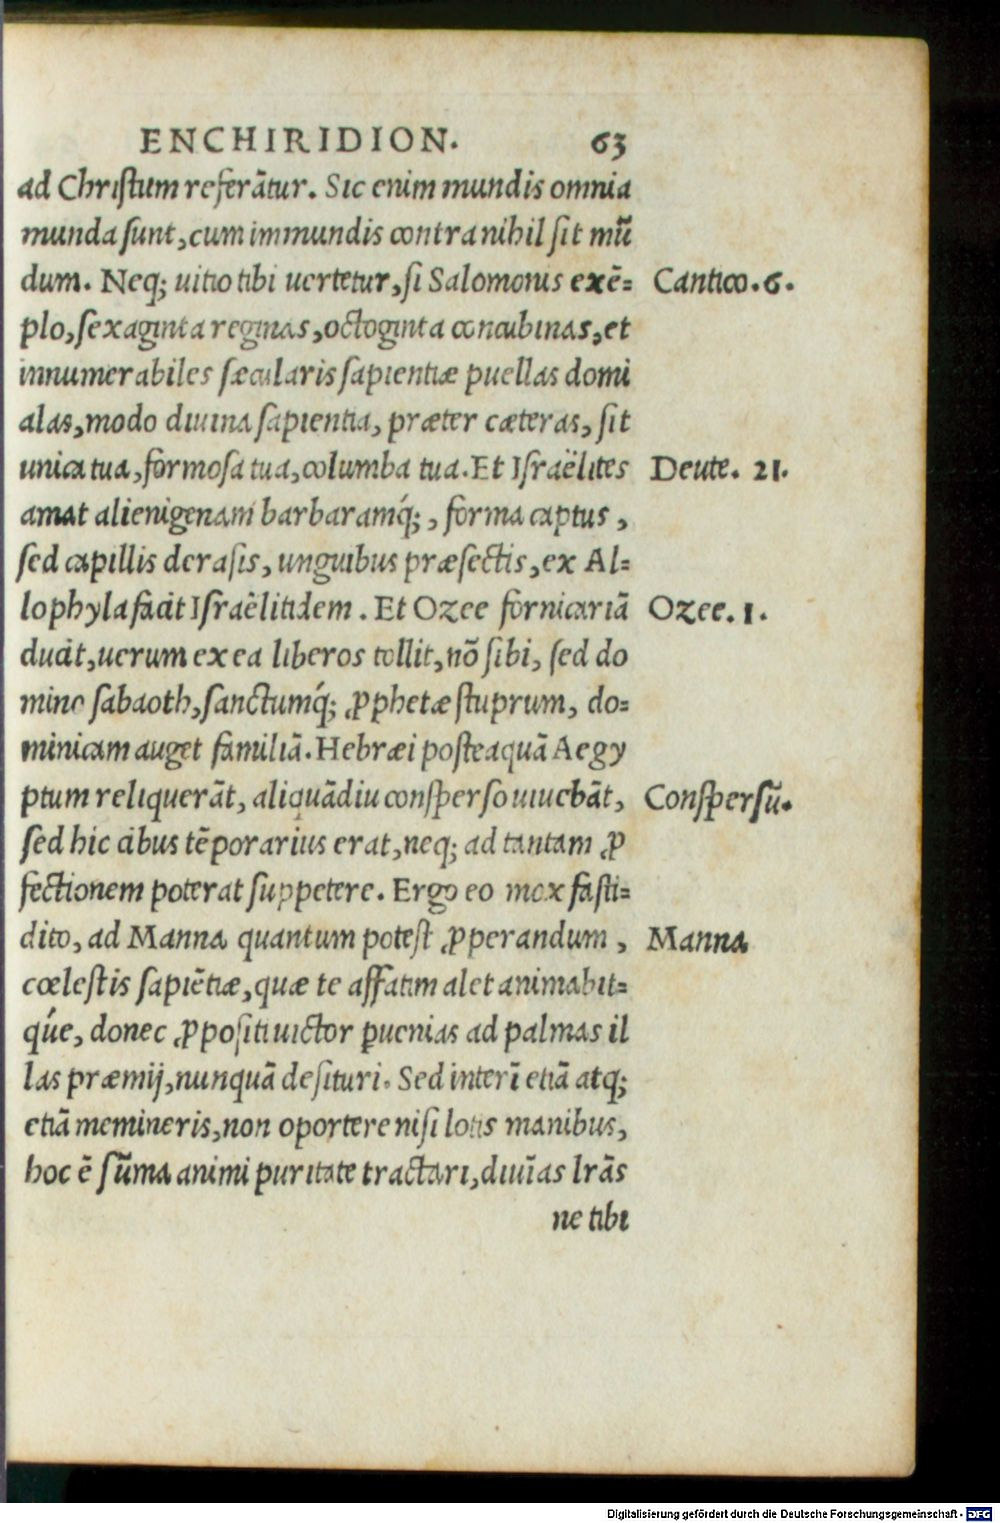 ENCHIRIDION. 63
ad Chriſtum referātur. Sic enim mundis omnia
munda ſunt, cum immundis contra nihil ſit mū
dum. Neq; uitio tibi uertetur, ſi Salomonis exē= Cantico. 6.
plo, ſexaginta reginas, octoginta concubinas, et
innumerabiles ſæcularis ſapientiæ puellas domi
alas, modo diuina ſapientia, præter cæteras, ſit
unica tua, formoſa tua, columba tua. Et Iſraëlites Deute. 21.
amat alienigenam barbaramq́;, forma captus,
ſed capillis deraſis, unguibus præſectis, ex Al=
lophyla facit Iſraëlitidem. Et Ozee fornicariā Ozee. 1.
ducit, uerum ex ea liberos tollit, nō ſibi, ſed do
mino ſabaoth, ſanctumq́; ꝓphetæ ſtuprum, do=
minicam auget familiā. Hebræi poſteaquā Aegy
ptum reliquerāt, aliquādiu conſperſo uiuebāt, Conſperſū.
ſed hic cibus tēporarius erat, neq; ad tantam ꝓ
fectionem poterat ſuppetere. Ergo eo mox faſti=
dito, ad Manna quantum poteſt ꝓperandum, Manna
cœleſtis ſapiētiæ, quæ te affatim alet animabit=
q́ue, donec ꝓpoſiti uictor ꝑuenias ad palmas il
las præmij, nunquā deſituri. Sed interī etiā atq;
etiā memineris, non oportere niſi lotis manibus,
hoc ē ſūma animi puritate tractari, diuīas lrās
ne tibi
Digitalisierung gefördert durch die Deutsche Forschungsgemeinschaft - DFG